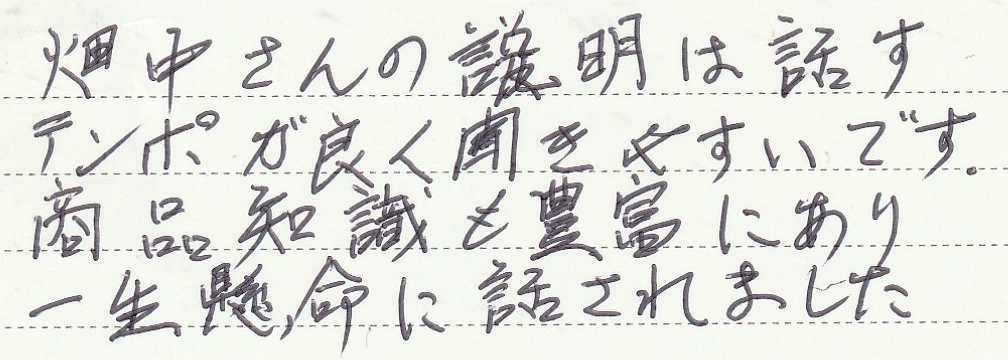 畑中さんの説明は話す
テンポが良く聞きやすいです.
商品知識も豊富にあり
一生懸命に話されました